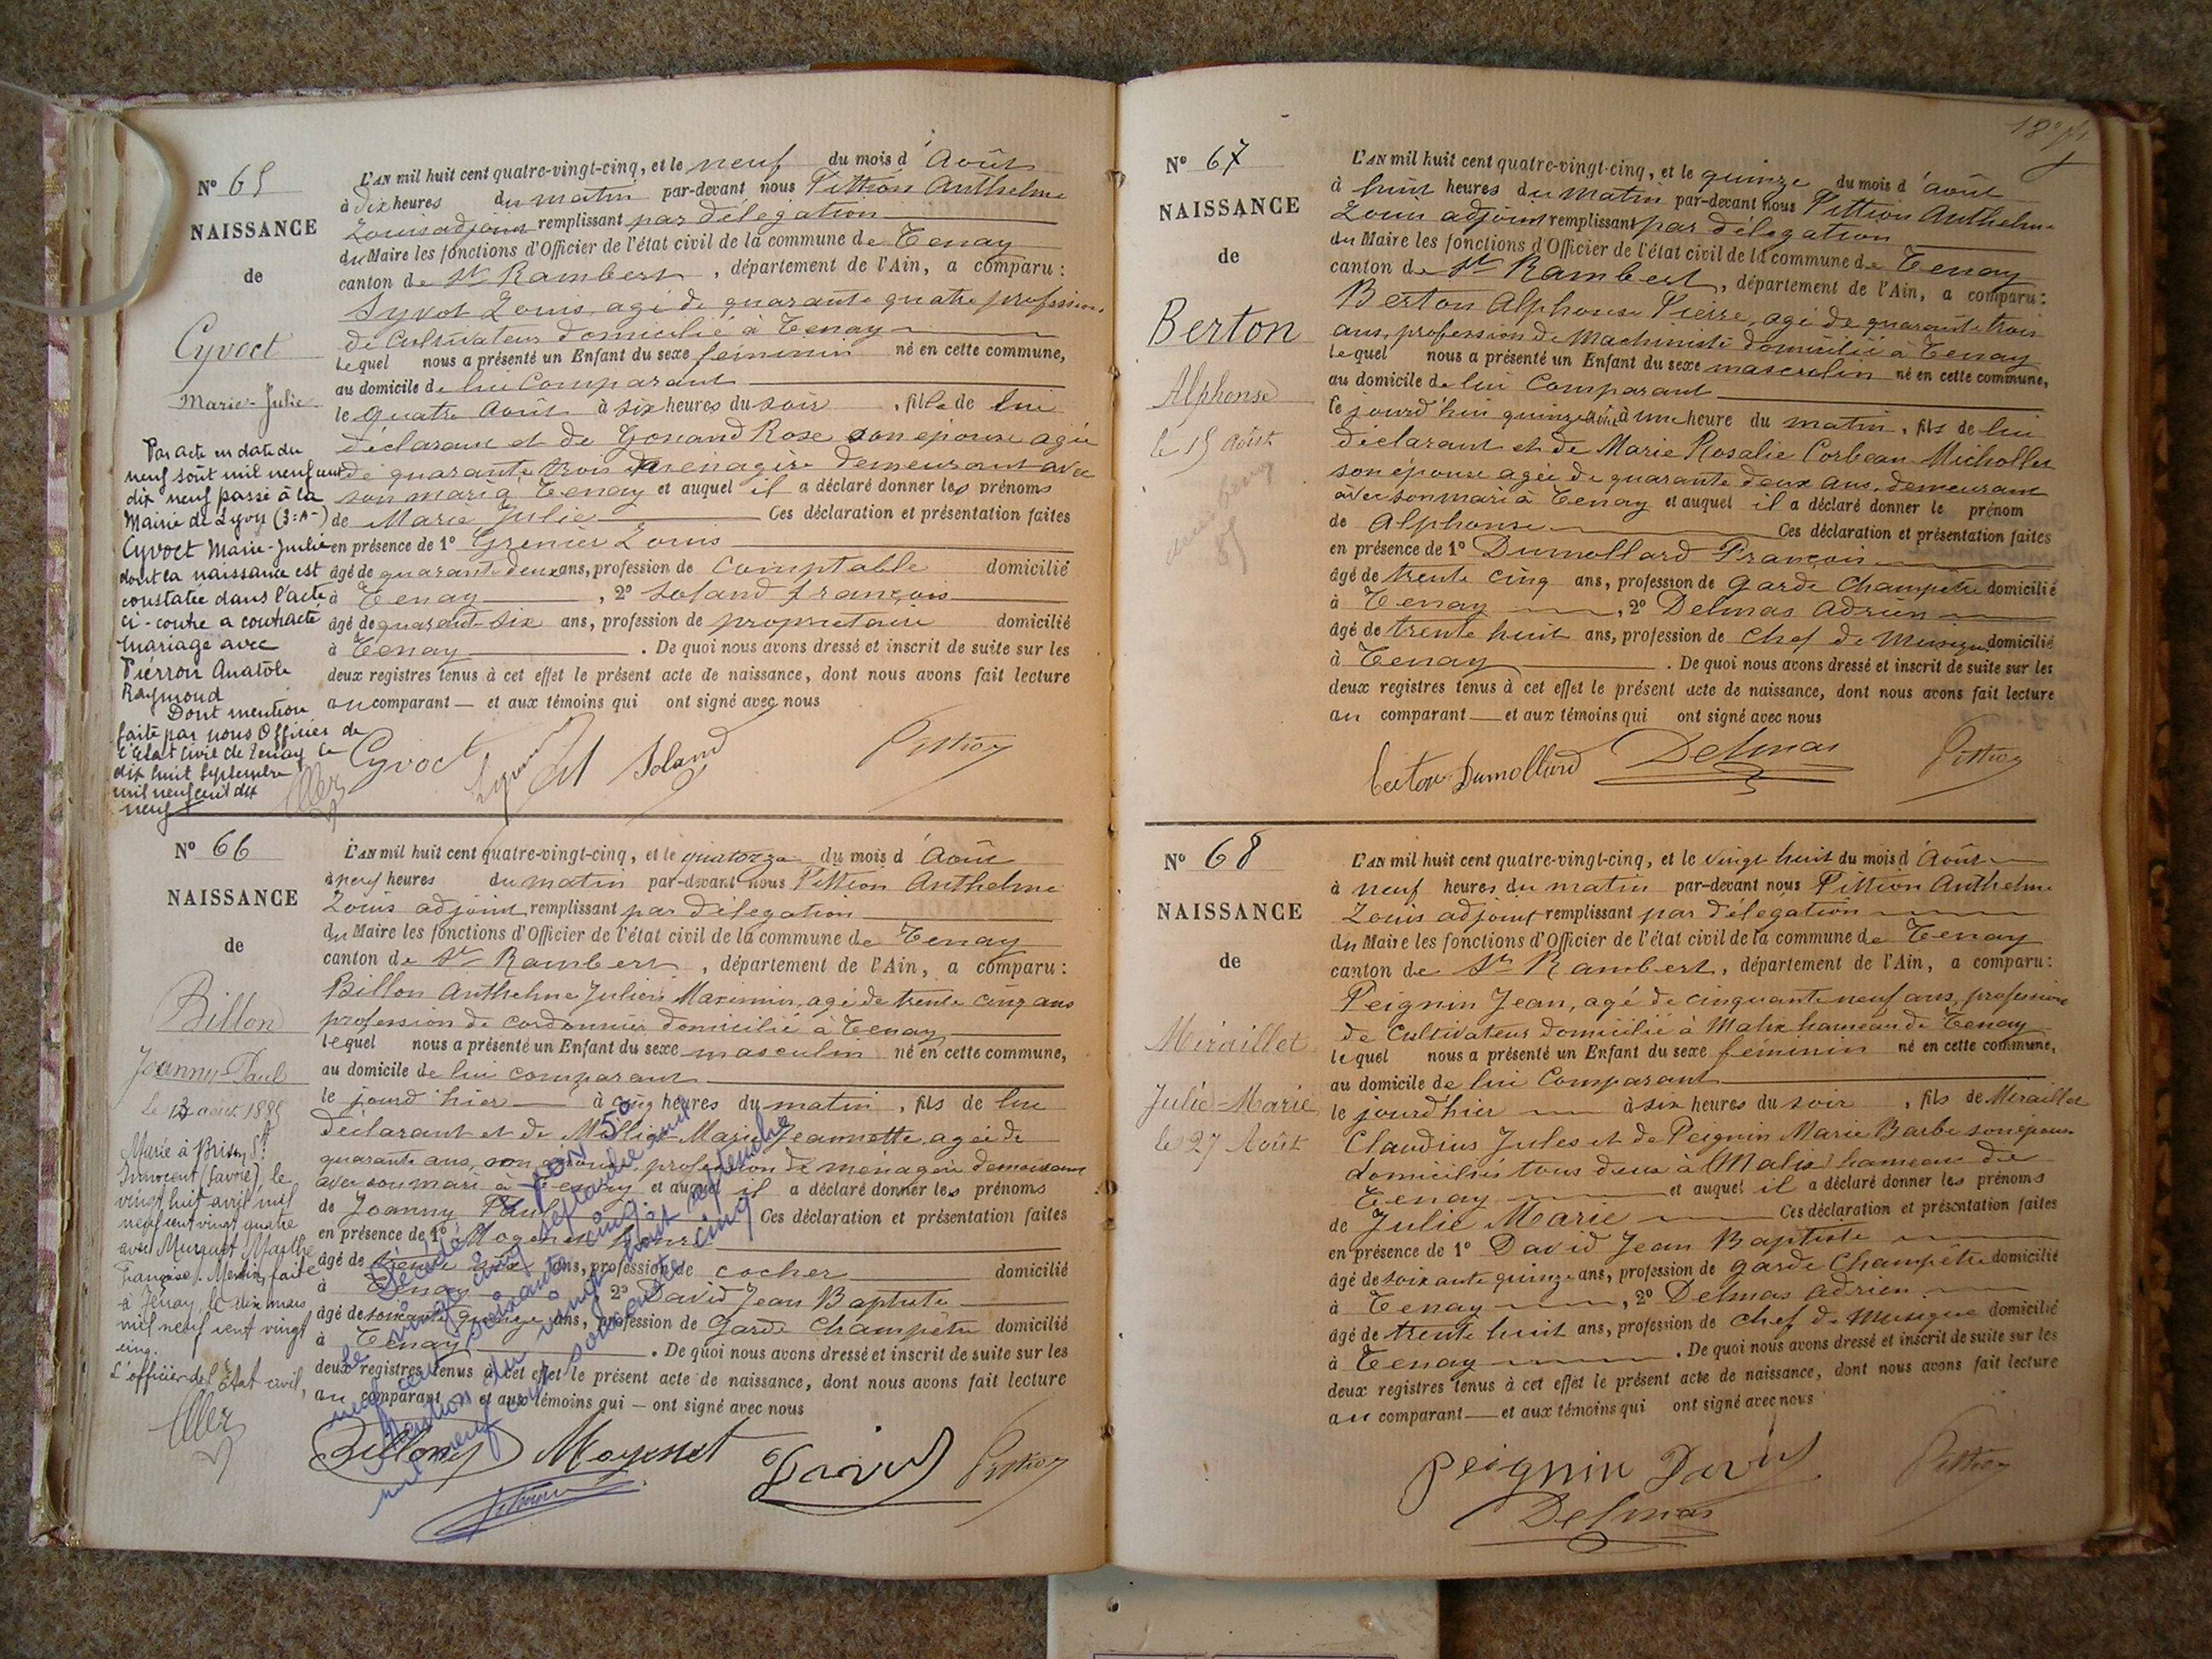 N° 65
NAISSANCE
de
Cyvoct
Marie-Julie
Par acte en date du
neuf août mil neuf cent
dix neuf passé à la
Mairie de Lyon (3e A-)
Cyvoct Marie-Julie
dont la naissance est
constatée dans l'acte
ci-contre a contracté
mariage avec
Pierron Anatole
Raymond
Dont mention
faite par nous Officier de
l'Etat Civil de Tenay le
dix huit Septembre
mil neuf cent dix
neuf
L'AN mil huit cent quatre-vingt-cinq, et le neuf du mois d'Août
à dix heures du matin par-devant nous Pittion Anthelme
Louis adjoint remplissant par délégation
du Maire les fonctions d'Officier de l'état civil de la commune de Tenay
canton de St Rambert, département de l'Ain, a comparu :
Syvot Louis, agé de quarante quatre profession
de Cultivateur domicilié à Tenay
lequel nous a présenté un Enfant du sexe féminin né en cette commune,
au domicile de lui Comparant
le quatre Août à six heures du soir, fille de lui
déclarant et de Gonand Rose son épouse agée
de quarante trois ménagère demeurant avec
son mari à Tenay et auquel il a déclaré donner les prénoms
de Marie Julie Ces déclaration et présentation faites
en présence de 1° Grenier Louis
âgé de quarante deux ans, profession de Comptable domicilié
à Tenay, 2° Soland françois
âgé de quarant-six ans, profession de propriétaire domicilié
à Tenay. De quoi nous avons dressé et inscrit de suite sur les
deux registres tenus à cet effet le présent acte de naissance, dont nous avons fait lecture
au comparant — et aux témoins qui ont signé avec nous
Cyvoct Soland Pittion
N° 66
NAISSANCE
de
Billon
Joanny-Paul
le 13 août 1885
Marié à Brison St
Innocent (Savoie), le
vingt huit avril mil
neuf cent vingt quatre
avec Murguet Marthe
Françoise. Mention faite
à Tenay, le dix mars
mil neuf cent vingt
cinq.
L'officier de l'Etat civil,
L'AN mil huit cent quatre-vingt-cinq, et le quatorze du mois d'Août
à neuf heures du matin par-devant nous Pittion Anthelme
Louis adjoint remplissant par délégation
du Maire les fonctions d'Officier de l'état civil de la commune de Tenay
canton de St Rambert, département de l'Ain, a comparu :
Billon Anthelme Julien Maximin, agé de trente cinq ans
profession de cordonnier domicilié à Tenay
lequel nous a présenté un Enfant du sexe masculin né en cette commune,
au domicile de lui comparant
le jourd'hier à cinq heures du matin, fils de lui
déclarant et de Marie Jeannette agée de
quarante ans, son épouse, profession de ménagère demeurant
avec son mari à Tenay et auquel il a déclaré donner les prénoms
de Joanny Paul Ces déclaration et présentation faites
en présence de 1° Mogenet
âgé de trente ans, profession de cocher domicilié
à Tenay, 2° David Jean Baptiste
âgé de soixante quinze ans, profession de Garde Champêtre domicilié
à Tenay. De quoi nous avons dressé et inscrit de suite sur les
deux registres tenus à cet effet le présent acte de naissance, dont nous avons fait lecture
au comparant et aux témoins qui — ont signé avec nous
Décédé
le vingt cinq septembre mil
neuf cent soixante cinq.
Mention du vingt huit septembre
mil neuf cent soixante cinq
Billon Mogenet David Pittion
N° 67
NAISSANCE
de
Berton
Alphonse
le 15 Août
L'AN mil huit cent quatre-vingt-cinq, et le quinze du mois d'août
à huit heures du matin par-devant nous Pittion Anthelme
Louis adjoint remplissant par délégation
du Maire les fonctions d'Officier de l'état civil de la commune de Tenay
canton de St Rambert, département de l'Ain, a comparu :
Berton Alphonse Pierre, agé de quarante trois
ans, profession de Machiniste domicilié à Tenay
lequel nous a présenté un Enfant du sexe masculin né en cette commune,
au domicile de lui Comparant
le jourd'hui quinze août à une heure du matin, fils de lui
déclarant et de Marie Rosalie Corbeau Michollet
son épouse agée de quarante deux ans, demeurant
avec son mari à Tenay et auquel il a déclaré donner le prénom
de Alphonse Ces déclaration et présentation faites
en présence de 1° Dumollard François
âgé de trente cinq ans, profession de garde Champêtre domicilié
à Tenay, 2° Delmas Adrien
âgé de trente huit ans, profession de chef de Musique domicilié
à Tenay. De quoi nous avons dressé et inscrit de suite sur les
deux registres tenus à cet effet le présent acte de naissance, dont nous avons fait lecture
au comparant — et aux témoins qui ont signé avec nous
Berton Dumollard Delmas Pittion
N° 68
NAISSANCE
de
Miraillet
Julie-Marie
le 27 Août
L'AN mil huit cent quatre-vingt-cinq, et le vingt huit du mois d'Août
à neuf heures du matin par-devant nous Pittion Anthelme
Louis adjoint remplissant par délégation
du Maire les fonctions d'Officier de l'état civil de la commune de Tenay
canton de St Rambert, département de l'Ain, a comparu :
Peignin Jean, agé de cinquante neuf ans, profession
de Cultivateur domicilié à Malix hameau de Tenay
lequel nous a présenté un Enfant du sexe féminin né en cette commune,
au domicile de lui Comparant
le jourd'hier à six heures du soir, fils de Miraillet
Claudius Jules et de Peignin Marie Barbe son épouse
domiciliés tous deux à Malix hameau de
Tenay et auquel il a déclaré donner les prénoms
de Julie Marie Ces déclaration et présentation faites
en présence de 1° David Jean Baptiste
âgé de soixante quinze ans, profession de garde Champêtre domicilié
à Tenay, 2° Delmas Adrien
âgé de trente huit ans, profession de chef de Musique domicilié
à Tenay. De quoi nous avons dressé et inscrit de suite sur les
deux registres tenus à cet effet le présent acte de naissance, dont nous avons fait lecture
au comparant — et aux témoins qui ont signé avec nous
Peignin David Pittion
Delmas